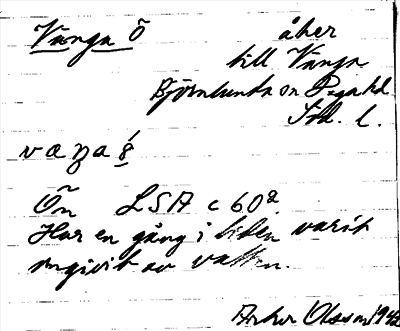 Vånga Ö åker
till Vånga
Björnlunda sn Daga hd
Söd. l.
Ön LSA c 60 2
Har en gång i tiden varit
omgivit av vatten.
Olsson 1942